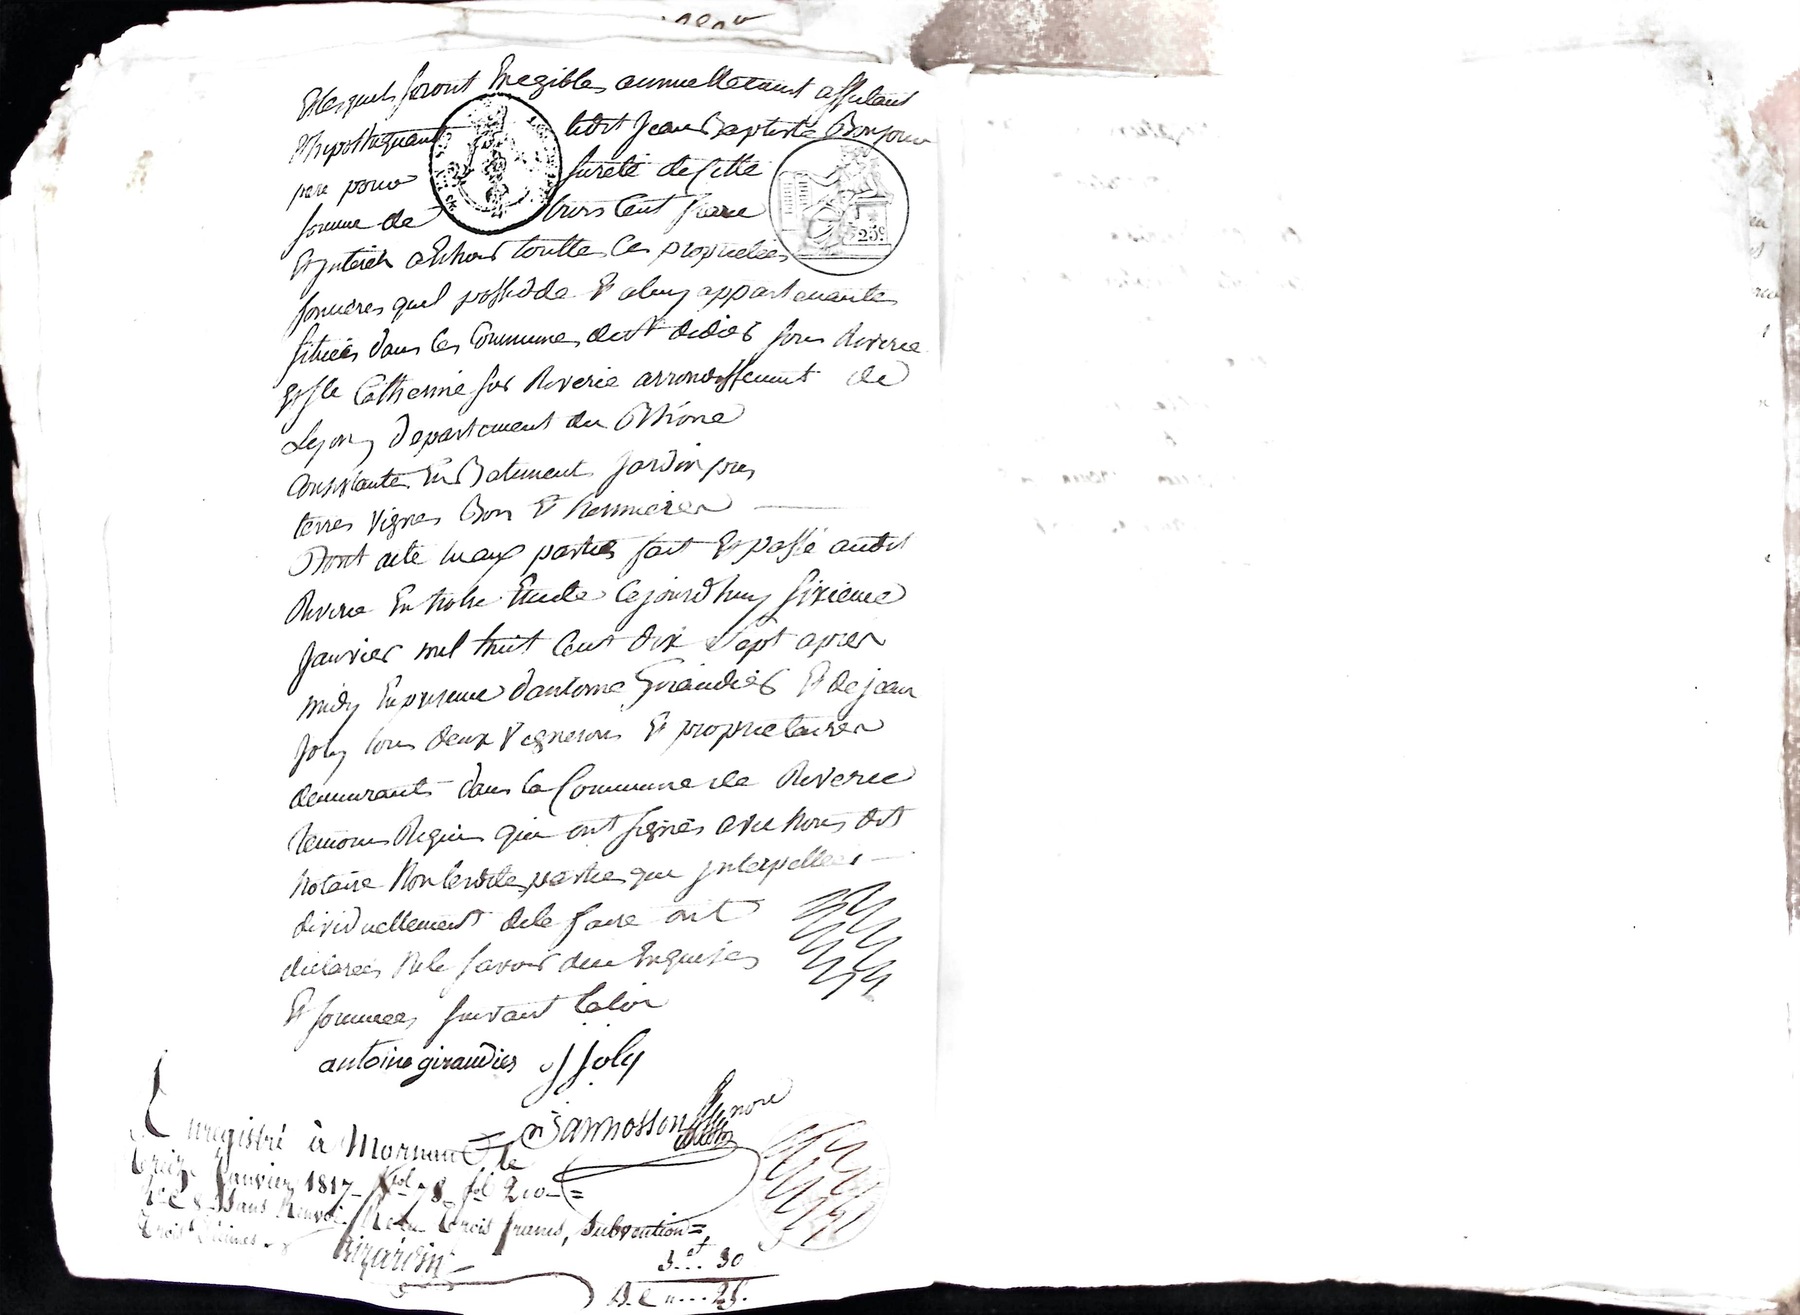 Et lesquels seront Exegibles annuellement affectant
Et hipothequant ledit Jean Baptiste Bonjour
pere pour sureté de Cette
somme de trois Cent franc
Et interets toutte Ces proprietées
foncieres quil possedde Et a luy appartenantes
situées dans les Communes de St didier sous Riverie
Et Ste Catherine sur Riverie arrondissement de
Lyon departement du Rhône
Consistantes En Batiments Jardin prés
terres Vignes Bois Et hermieres
Dont acte lu aux parties fait Et passé audit
Riverie En notre Etude Cejourdhuy sixieme
Janvier mil huit Cent dix Sept après
midy En presence dantoine Giraudier Et de jean
Joly tous deux Vignerons Et proprietaires
demeurants dans la Commune de Riverie
temoins Requis qui ont signés avec Nous dit
Notaire Non lesdites parties qui Interpellées
dividuellement de le faire ont
declarées Ne le savoir de ce Enquises
Et sommées suivant la loi
antoine giraudier J Joly
25c
Enregistré à Mornant le
treize Janvier 1817 Vol 78 fol 210
Ce 8 Sans Renvoi Reçu trois francs, Subvention
trois décimes
3... 30
25.